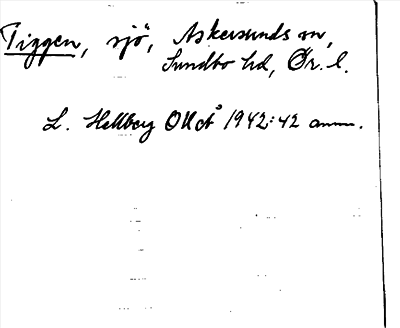 Tiggen, sjö, Askersunds sn,
Sundbo hd, Ör. l.
L. Hellberg OUÅ 1942:42 anm.